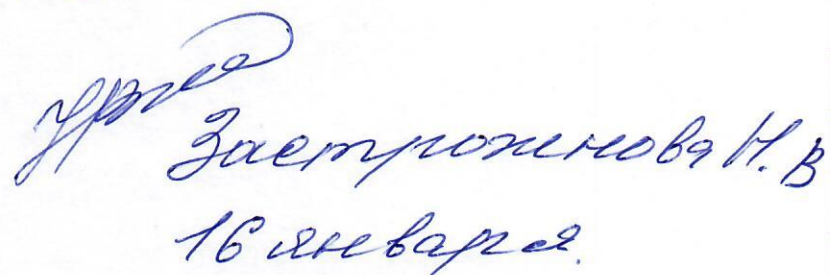 Застроженова Н.В
16 января.